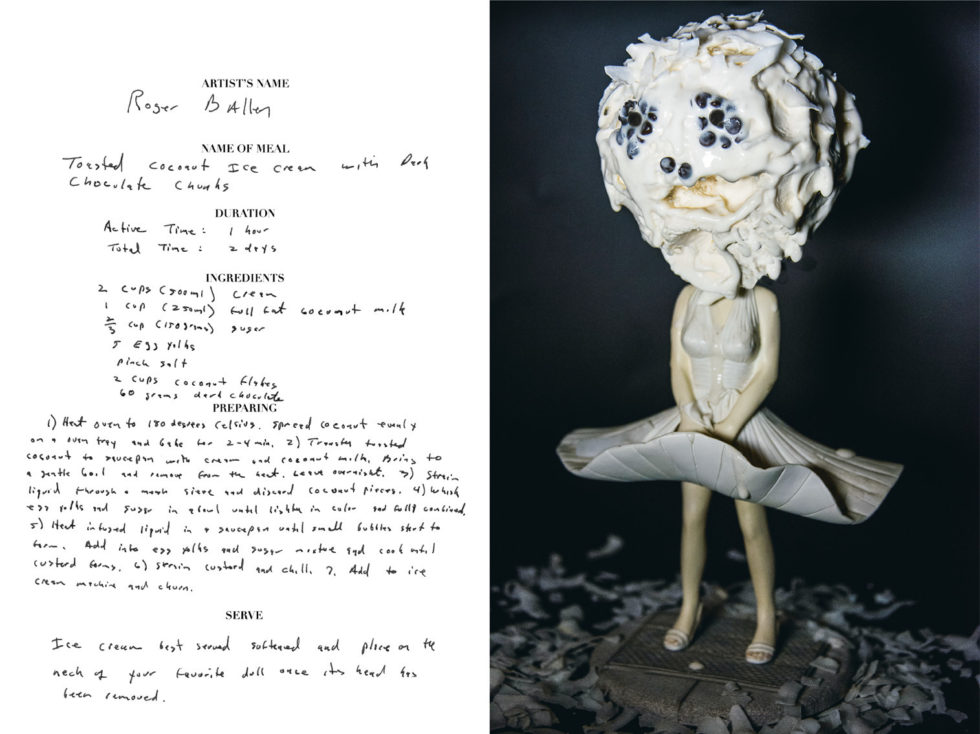 ARTIST'S NAME
Roger Ballen
NAME OF MEAL
Toasted Coconut Ice cream with Dark
Chocolate Chunks
DURATION
Active Time: 1 hour
Total Time: 2 days
INGREDIENTS
2 cups (500ml) cream
1 cup (250ml) full fat coconut milk
2/3 cup (150grams) sugar
5 Egg yolks
pinch salt
2 cups coconut flakes
60 grams dark chocolate
PREPARING
1) Heat oven to 180 degrees Celsius. Spread coconut evenly
on a oven tray and bake for 2-4 min. 2) Transfer toasted
coconut to saucepan with cream and coconut milk. Bring to
a gentle boil and remove from the heat. Leave overnight. 3) Strain
liquid through a mesh sieve and discard coconut pieces. 4) Whisk
egg yolks and sugar in a bowl until lighter in color and fully combined.
5) Heat infused liquid in a saucepan until small bubbles start to
form. Add into egg yolks and sugar mixture and cook until
custard forms. 6) Strain custard and chill. 7. Add to ice
cream machine and churn.
SERVE
Ice cream best served softened and place on the
neck of your favorite doll once its head has
been removed.